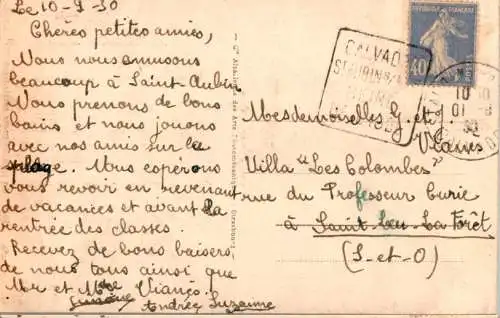 Le 10-9-30
Chères petites amies,
Nous nous amusons
beaucoup à Saint-Aubin
Nous prenons de bons
bains et nous jouons
avec nos amis sur la
plage. Nous espérons
vous revoir en revenant
de vacances et avant la
rentrée des classes.
Recevez de bons baisers
de nous tous ainsi que
Mr et Mme Viançs.
Andrée Suzanne
REPUBLIQUE FRANÇAISE
40
POSTES
CALVAD
ST AUBIN S/
Mesdemoiselles G. et J.
Villa "Les Colombes"
rue du Professeur Curie
à Saint Leu La Forêt
(S-et-O)